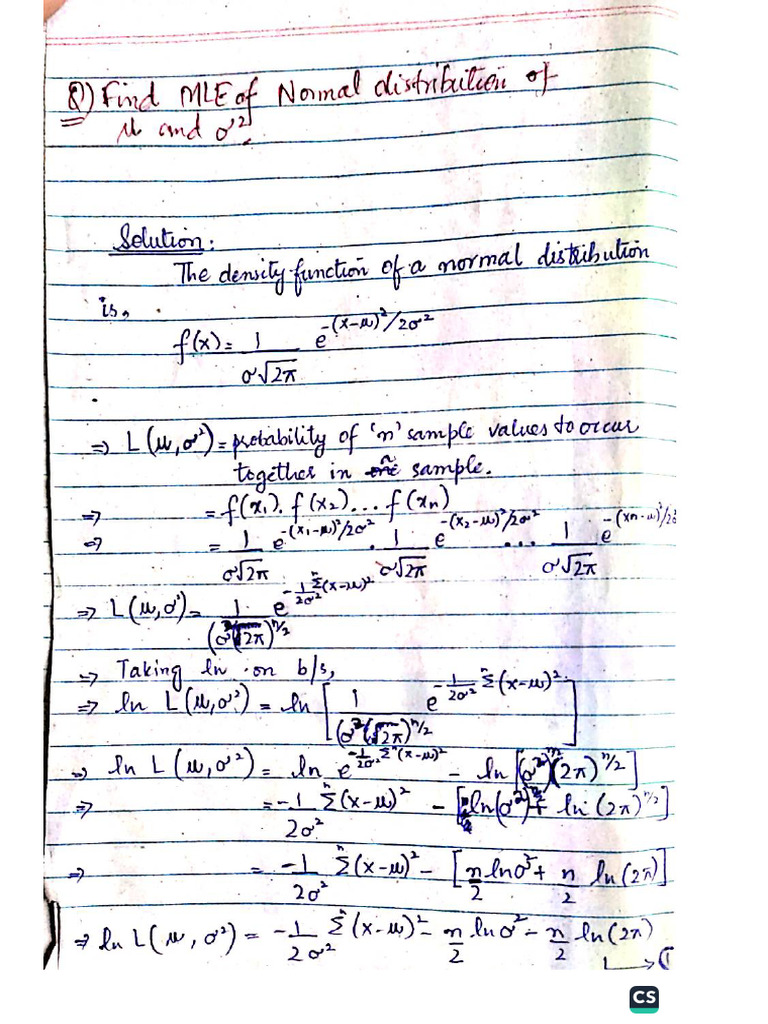 Q) Find MLE of Normal distribution of
μ and σ².
Solution:
The density function of a normal distribution
is,
f(x) = 1/(σ√2π) e^(-(x-μ)²/2σ²)
⇒ L(μ,σ²) = probability of 'n' sample values to occur
together in a sample.
⇒ = f(x₁). f(x₂)... f(xn)
⇒ = 1/(σ√2π) e^(-(x₁-μ)²/2σ²) . 1/(σ√2π) e^(-(x₂-μ)²/2σ²) ... 1/(σ√2π) e^(-(xn-μ)²/2σ
⇒ L(μ,σ²) = 1/(σ²(2π))^(n/2) e^(-1/2σ² Σⁿ(x-μ)²)
⇒ Taking ln on b/s,
⇒ ln L(μ,σ²) = ln [1/(σ²(2π))^(n/2) e^(-1/2σ² Σⁿ(x-μ)²)]
⇒ ln L(μ,σ²) = ln e^(-1/2σ² Σⁿ(x-μ)²) - ln[(σ²)^(n/2) (2π)^(n/2)]
⇒ = -1/2σ² Σⁿ(x-μ)² - [ln(σ²)^(n/2) + ln (2π)^(n/2)]
⇒ = -1/2σ² Σⁿ(x-μ)² - [n/2 lnσ² + n/2 ln(2π)]
⇒ ln L(μ, σ²) = -1/2σ² Σⁿ(x-μ)² - n/2 lnσ² - n/2 ln(2π)
CS